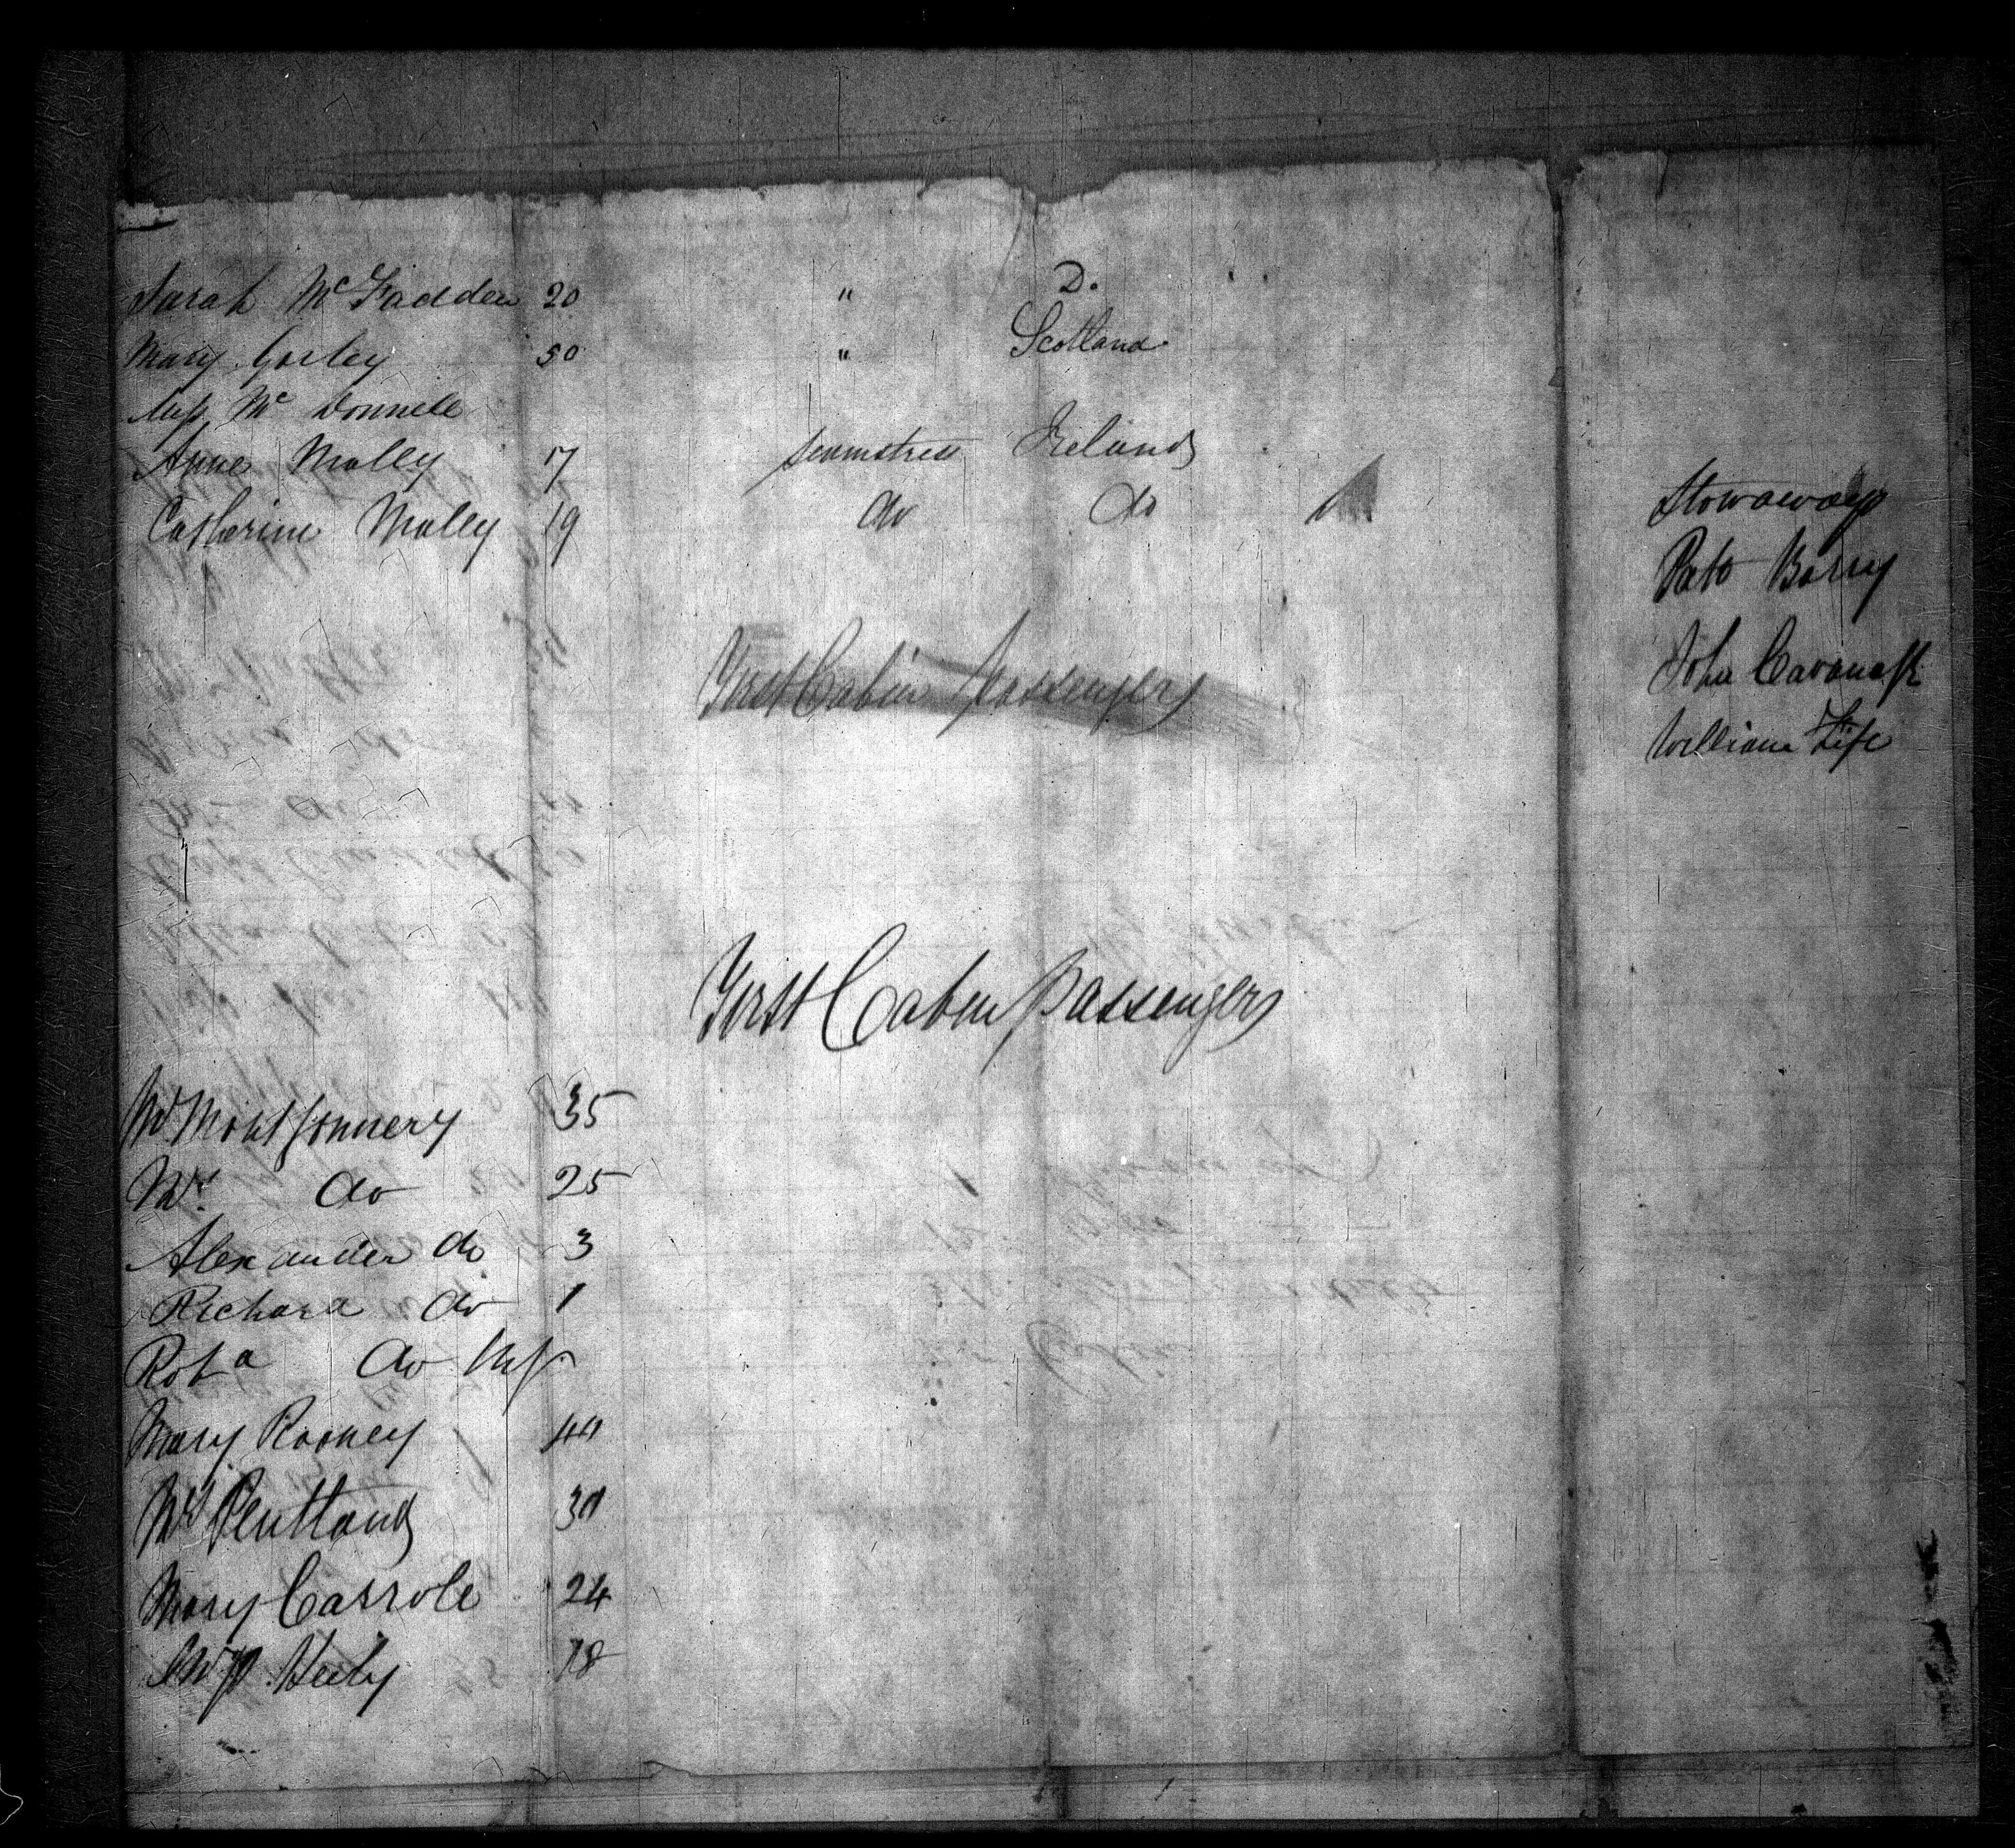 Sarah McFadden 20 " D.
Mary Gorley 50 " Scotland
Miss Mc Donnell
Anne Molley 17 seamstress Ireland
Catherine Molley 19 do do
First Cabin Passengers
First Cabin Passengers
Mr Montgomery 35
Mrs do 25
Alexander do 3
Richard do 1
Robt a do Inf
Mary Rooney 44
Mrs Pentland 30
Mary Carroll 24
Healy 18
Stowaways
Patk Barry
John Cavanagh
William Fife